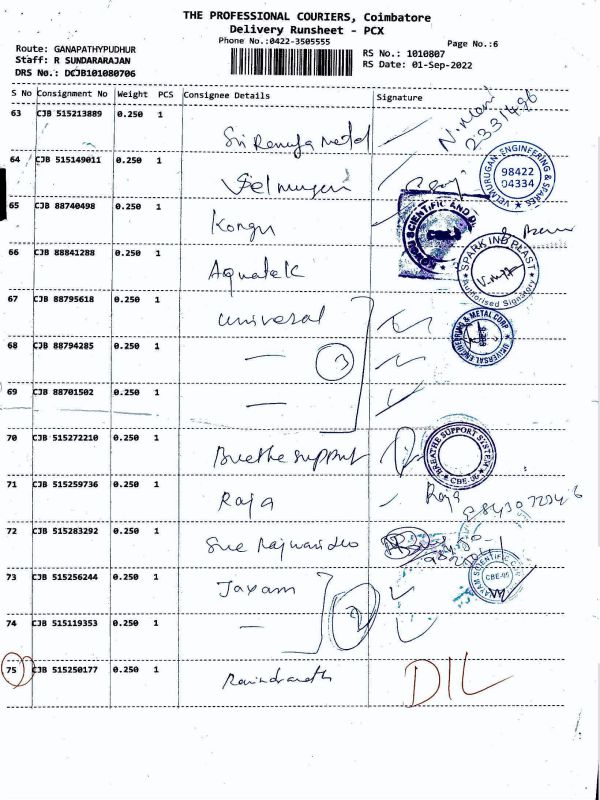 THE PROFESSIONAL COURIERS, Coimbatore
Delivery Runsheet - PCX
Phone No.:0422-3505555
Page No.:6
Route: GANAPATHYPUDHUR
Staff: R SUNDARARAJAN
DRS No.: DCJB101080706
RS No.: 1010807
RS Date: 01-Sep-2022
S No Consignment No Weight PCS Consignee Details Signature
63 CJB 515213889 0.250 1
N. Mani
2331496
64 CJB 515149011 0.250 1 Velmurugan
VELMURUGAN ENGINEERING & SPARES
98422
04334
65 CJB 88740498 0.250 1 Kongu
KONGU SCIENTIFIC AND
66 CJB 88841288 0.250 1 Aquatek
SPARK INO PLAST
Authorised Signatory
67 CJB 88795618 0.250 1 Universal
UNIVERSAL ENGINEERING & METAL CORP
68 CJB 88794285 0.250 1 — 3
69 CJB 88701502 0.250 1 —
70 CJB 515272210 0.250 1 Breethe support
BREATHE SUPPORT SYSTEM
CBE-06
71 CJB 515259736 0.250 1 Raja Raja
72 CJB 515283292 0.250 1
73 CJB 515256244 0.250 1 Jayam
JAYAM SCIENTIFIC
CBE-05
74 CJB 515119353 0.250 1 — 2
75 CJB 515250177 0.250 1 Ravindranath DIL